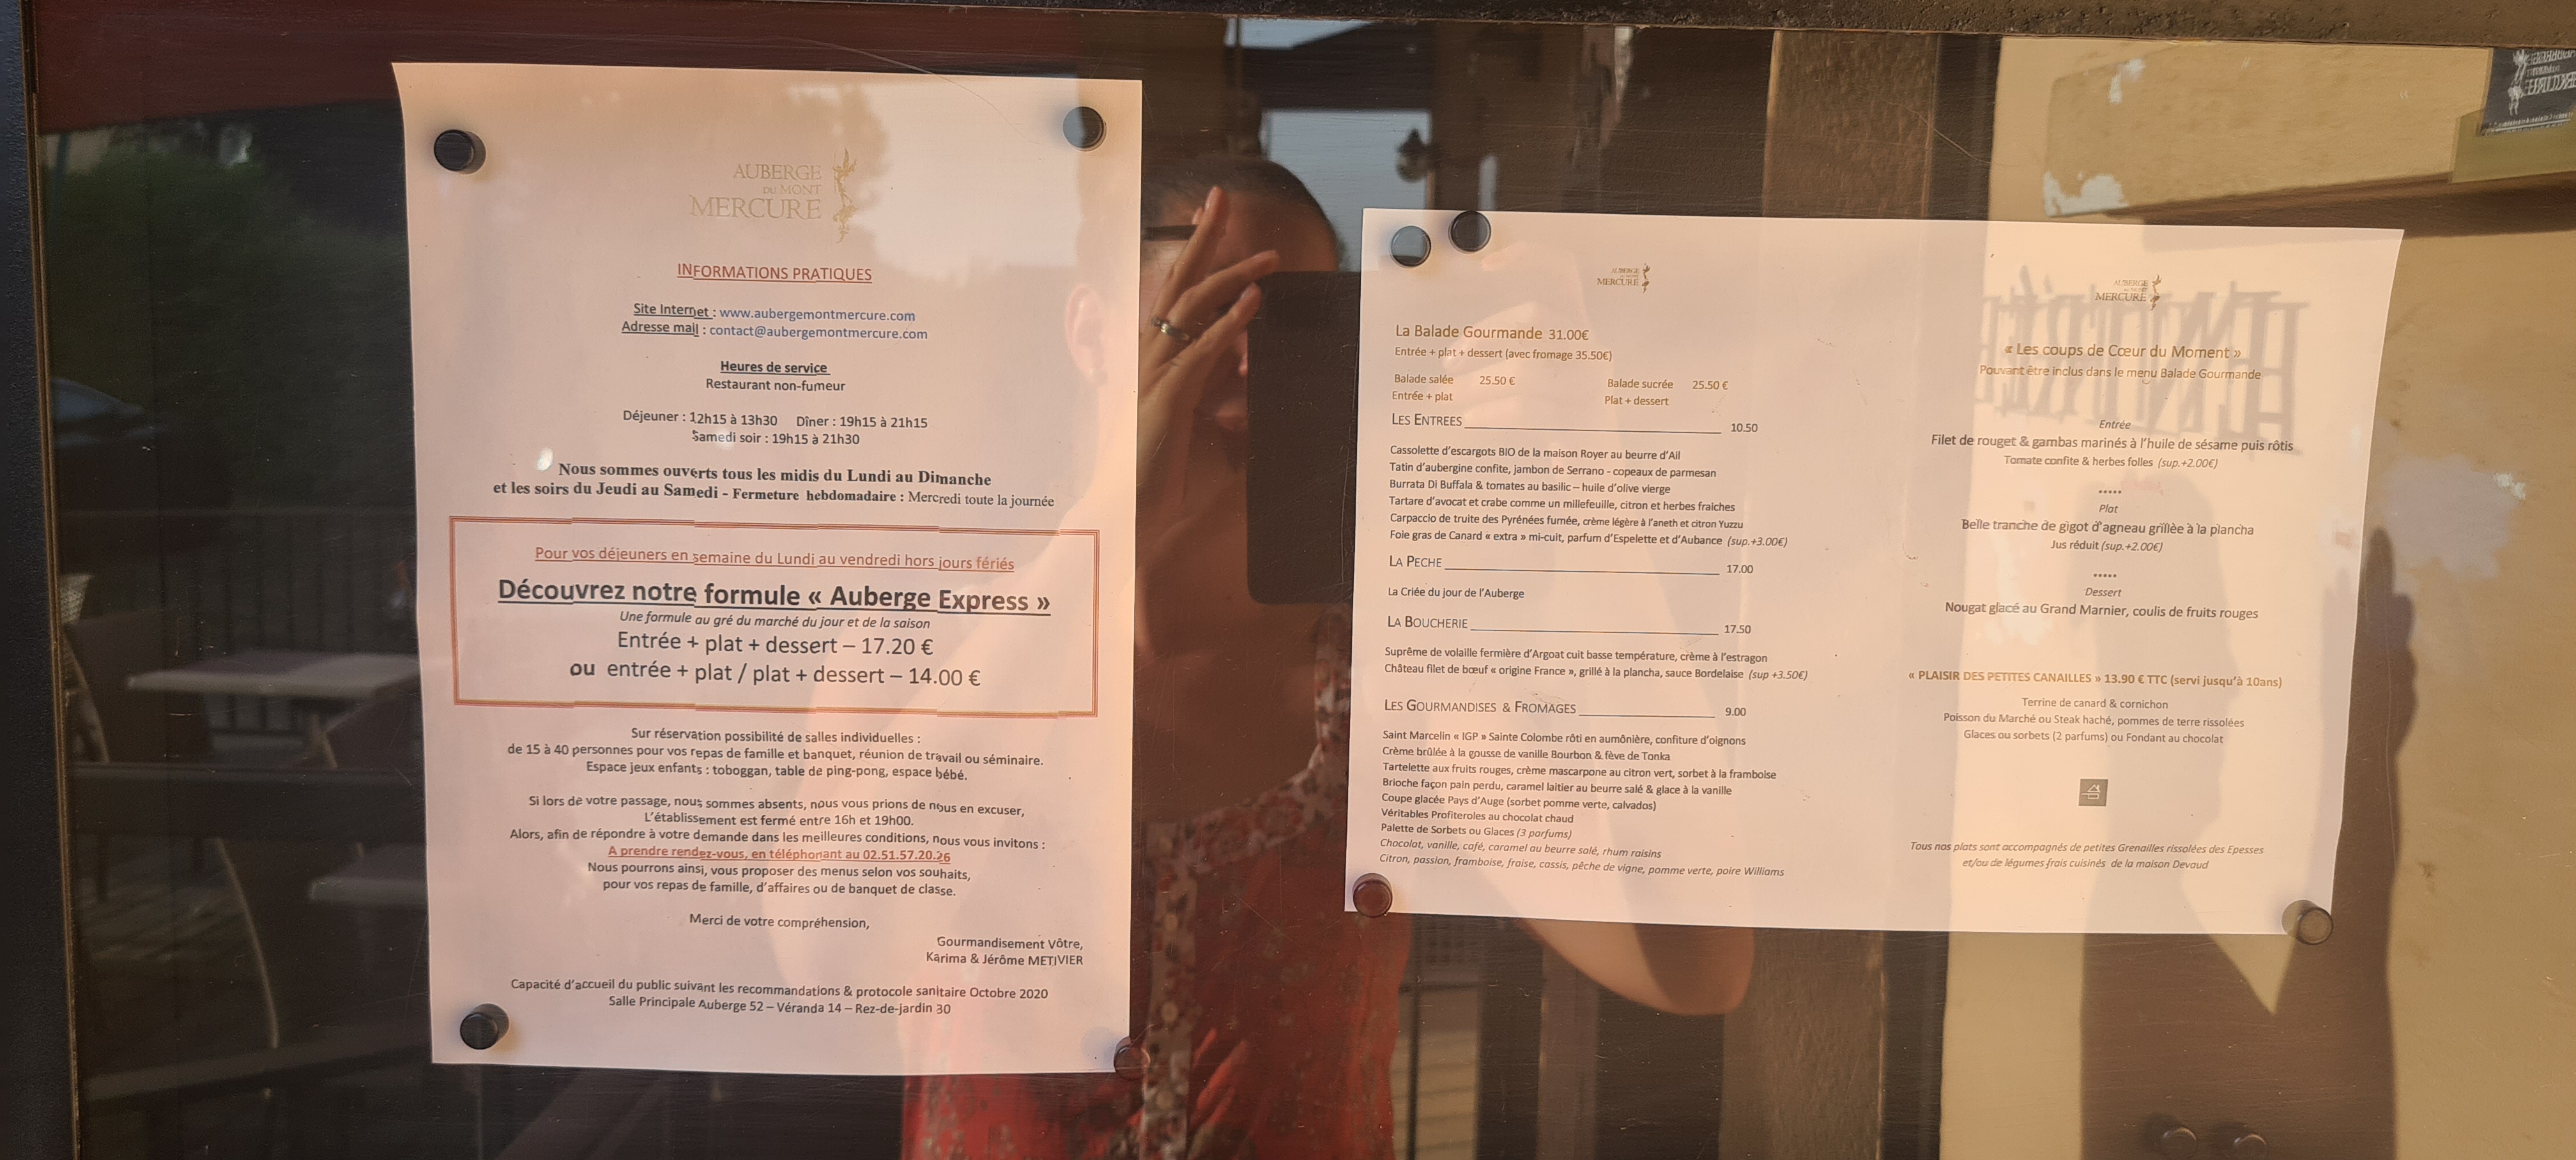 AUBERGE
DU MONT
MERCURE
INFORMATIONS PRATIQUES
Site Internet : www.aubergemontmercure.com
Adresse mail : contact@aubergemontmercure.com
Heures de service
Restaurant non-fumeur
Déjeuner : 12h15 à 13h30 Dîner : 19h15 à 21h15
Samedi soir : 19h15 à 21h30
Nous sommes ouverts tous les midis du Lundi au Dimanche
et les soirs du Jeudi au Samedi - Fermeture hebdomadaire : Mercredi toute la journée
Pour vos déjeuners en semaine du Lundi au vendredi hors jours fériés
Découvrez notre formule « Auberge Express »
Une formule au gré du marché du jour et de la saison
Entrée + plat + dessert – 17.20 €
ou entrée + plat / plat + dessert – 14.00 €
Sur réservation possibilité de salles individuelles :
de 15 à 40 personnes pour vos repas de famille et banquet, réunion de travail ou séminaire.
Espace jeux enfants : toboggan, table de ping-pong, espace bébé.
Si lors de votre passage, nous sommes absents, nous vous prions de nous en excuser,
L'établissement est fermé entre 16h et 19h00.
Alors, afin de répondre à votre demande dans les meilleures conditions, nous vous invitons :
A prendre rendez-vous, en téléphonant au 02.51.57.20.26
Nous pourrons ainsi, vous proposer des menus selon vos souhaits,
pour vos repas de famille, d'affaires ou de banquet de classe.
Merci de votre compréhension,
Gourmandisement Vôtre,
Karima & Jérôme METIVIER
Capacité d'accueil du public suivant les recommandations & protocole sanitaire Octobre 2020
Salle Principale Auberge 52 – Véranda 14 – Rez-de-jardin 30
AUBERGE
DU MONT
MERCURE
La Balade Gourmande 31.00€
Entrée + plat + dessert (avec fromage 35.50€)
Balade salée 25.50 € Balade sucrée 25.50 €
Entrée + plat Plat + dessert
LES ENTREES 10.50
Cassolette d'escargots BIO de la maison Royer au beurre d'Ail
Tatin d'aubergine confite, jambon de Serrano - copeaux de parmesan
Burrata Di Buffala & tomates au basilic – huile d'olive vierge
Tartare d'avocat et crabe comme un millefeuille, citron et herbes fraiches
Carpaccio de truite des Pyrénées fumée, crème légère à l'aneth et citron Yuzzu
Foie gras de Canard « extra » mi-cuit, parfum d'Espelette et d'Aubance (sup.+3.00€)
LA PECHE 17.00
La Criée du jour de l'Auberge
LA BOUCHERIE 17.50
Suprême de volaille fermière d'Argoat cuit basse température, crème à l'estragon
Château filet de bœuf « origine France », grillé à la plancha, sauce Bordelaise (sup +3.50€)
LES GOURMANDISES & FROMAGES 9.00
Saint Marcelin « IGP » Sainte Colombe rôti en aumônière, confiture d'oignons
Crème brûlée à la gousse de vanille Bourbon & fève de Tonka
Tartelette aux fruits rouges, crème mascarpone au citron vert, sorbet à la framboise
Brioche façon pain perdu, caramel laitier au beurre salé & glace à la vanille
Coupe glacée Pays d'Auge (sorbet pomme verte, calvados)
Véritables Profiteroles au chocolat chaud
Palette de Sorbets ou Glaces (3 parfums)
Chocolat, vanille, café, caramel au beurre salé, rhum raisins
Citron, passion, framboise, fraise, cassis, pêche de vigne, pomme verte, poire Williams
AUBERGE
DU MONT
MERCURE
« Les coups de Cœur du Moment »
Pouvant être inclus dans le menu Balade Gourmande
Entrée
Filet de rouget & gambas marinés à l'huile de sésame puis rôtis
Tomate confite & herbes folles (sup.+2.00€)
*****
Plat
Belle tranche de gigot d'agneau grillèe à la plancha
Jus réduit (sup.+2.00€)
*****
Dessert
Nougat glacé au Grand Marnier, coulis de fruits rouges
« PLAISIR DES PETITES CANAILLES » 13.90 € TTC (servi jusqu'à 10ans)
Terrine de canard & cornichon
Poisson du Marché ou Steak haché, pommes de terre rissolées
Glaces ou sorbets (2 parfums) ou Fondant au chocolat
Tous nos plats sont accompagnés de petites Grenailles rissolées des Epesses
et/ou de légumes frais cuisinés de la maison Devaud